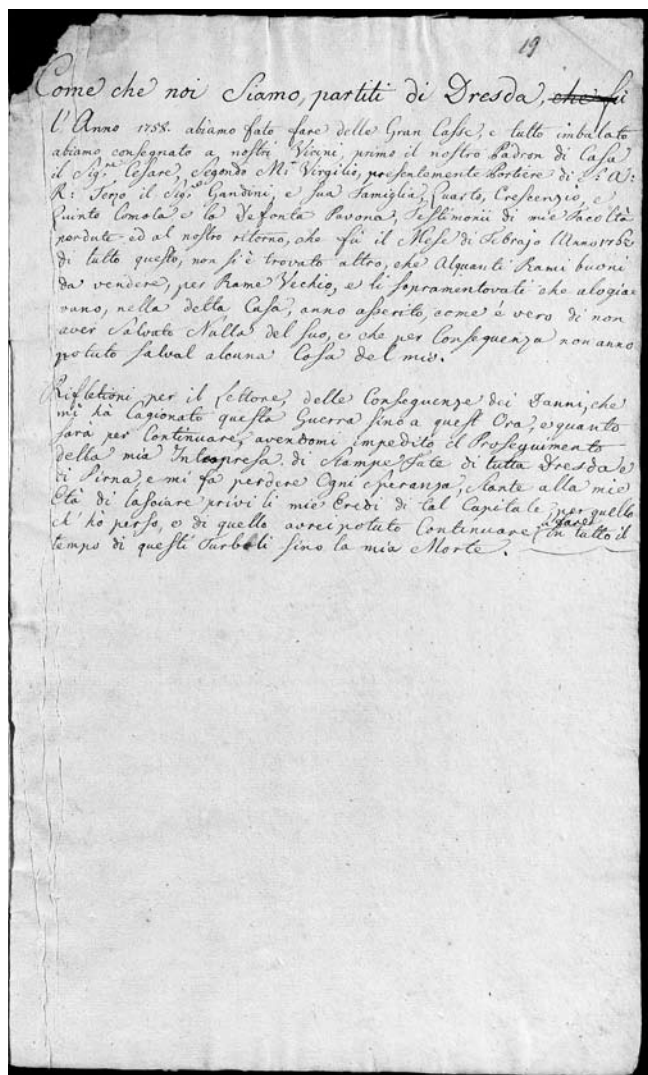 19
Come che noi Siamo, partiti di Dresda, che fù
l'Anno 1758. abiamo fato fare delle Gran Casse, e tutto imbalato
abiamo consegnato a nostri Vicini primo il nostro Padron di Casa
il Sig.re Cesare, Segondo Mr. Virgilio, presentemente Portiere di S: A:
R: Terzo il Sig.re Gandini, e sua Famiglia, Quarto, Crescenzio, e
Quinto Comola e la Defonta Pavona, Testimonii di mie Facoltà
perdute ed al nostro ritorno, che fù il Mese di Febrajo l'Anno
di tutto questo, non si è trovato altro, che Alquanti Rami buoni
da vendere, per Rame Vechio, e li sopramentovati che alogia=
vano, nella detta Casa, anno asserito, come è vero di non
aver Salvato Nulla del suo, e che per Consequenza non anno
potuto salval alcuna Cosa del mio.
Rifletioni, per il Lettore, delle Consequenze dei Danni, che
mi hà Cagionato questa Guerra sino a quest Ora, e quanto
sarà per Continuare, avendomi impedito il Proseguimento
della mia Intrapresa, di Stampe Fate di tutta Dresda e
di Pirna, e mi fa perdere Ogni Speranza, Stante alla mie
Età di lasciare privi li mie Eredi di tal Capitale, per quello
ch' hò perso, e di quello avrei potuto Continuare a fare in tutto il
tempo di questi Turboli sino la mia Morte.